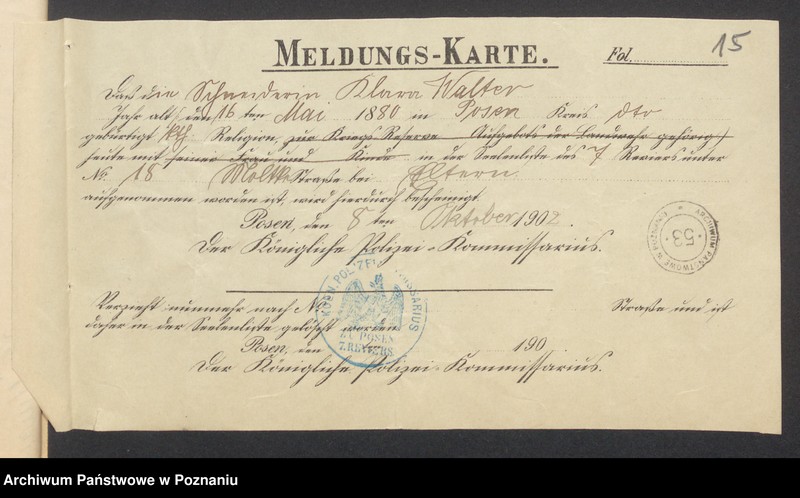 15
MELDUNGS-KARTE. Fol.
Daß die Schneiderin Klara Walter
Jahr alt, den 16 ten Mai 1880 in Posen Kreis dto
gebürtigt kth Religion, zur Kriegs-Reserve Aufgebots der Landwehr gehörig,
heute mit seiner Frau und Kinde in der Seelenliste des 7 Reviers unter
No. 18 Moltke Straße bei Eltern
aufgenommen worden ist, wird hierdurch bescheinigt.
Posen, den 8 ten Oktober 1902.
Der Königliche Polizei-Kommissarius.
ARCHIWUM PAŃSTWOWE W POZNANIU
53
KÖNI. POLIZEI KOMMISSARIUS
ZU POSEN
7. REVIERS.
Verzieht nunmehr nach No Straße und ist
daher in der Seelenliste gelöscht worden.
Posen, den 190
Der Königliche Polizei-Kommissarius.
Archiwum Państwowe w Poznaniu